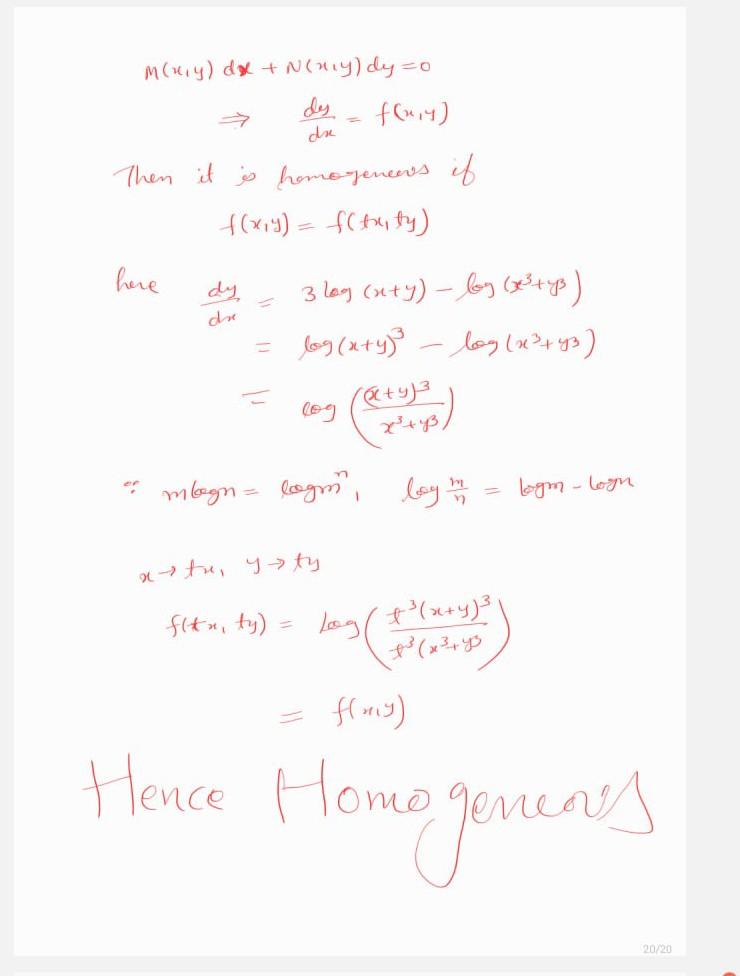 M(x,y) dx + N(x,y) dy = 0
⇒ dy/dx = f(x,y)
Then it is homogeneous if
f(x,y) = f(tx, ty)
here dy/dx = 3 log (x+y) - log (x³+y³)
= log (x+y)³ - log (x³+y³)
= log ((x+y)³/(x³+y³))
∵ m logn = logmⁿ, log m/n = logm - logn
x → tx, y → ty
f(tx, ty) = Log (t³(x+y)³/t³(x³+y³)
= f(x,y)
Hence Homogeneous
20/20